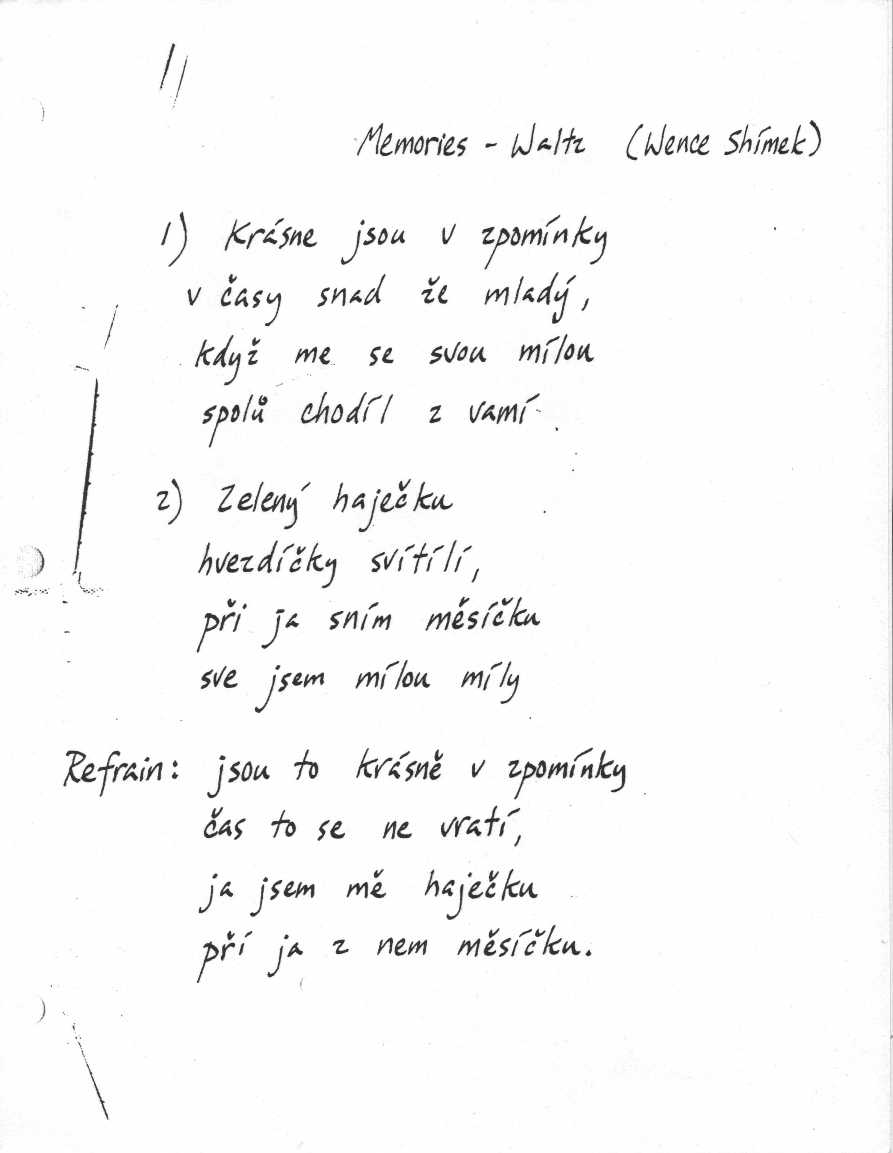 11
Memories - Waltz (Wence Shímek)
1) Krásne jsou v zpomínky
v časy snad že mladý,
když me se svou mílou
spolů chodíl z vamí
2) Zelený haječku
hvezdíčky svítílí,
při ja sním měsíčku
sve jsem mílou míly
Refrain: jsou to krásně v zpomínky
čas to se ne vratí,
ja jsem mě haječku
pří ja z nem měsíčku.